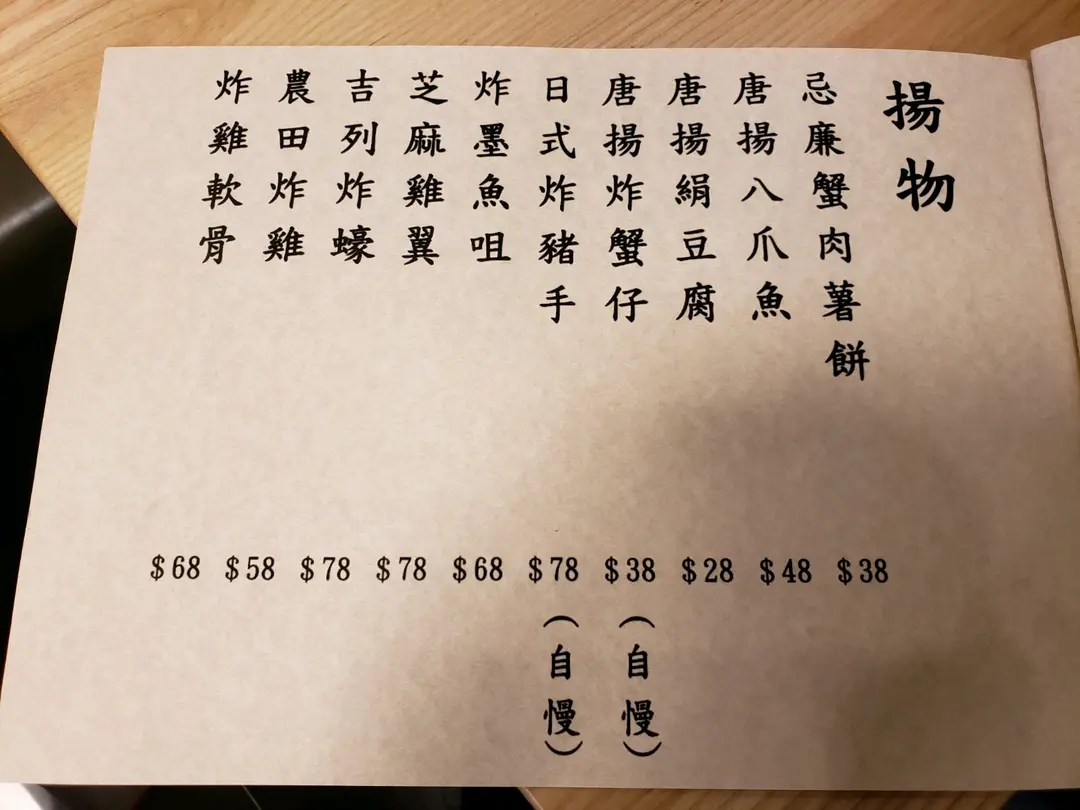 揚物
忌廉蟹肉薯餅 $38
唐揚八爪魚 $48
唐揚絹豆腐 $28
唐揚炸蟹仔 $38 (自慢)
日式炸豬手 $78 (自慢)
炸墨魚咀 $68
芝麻雞翼 $78
吉列炸蠔 $78
農田炸雞 $58
炸雞軟骨 $68